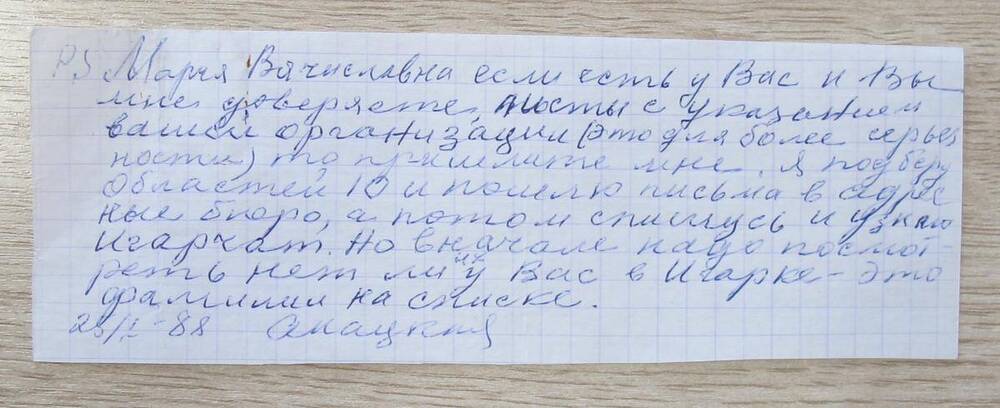 PS Мария Вячиславна если есть у Вас и Вы
мне доверяете, листы с указанием
вашей организации (это для более серьез
ности) то пришлите мне. Я подберу
областей 10 и пошлю письма в адрес
ные бюро, а потом спишусь и узнаю
Игарчат. Но вначале надо посмот-
реть нет ли у Вас в Игарке - это
фамилии на списке.